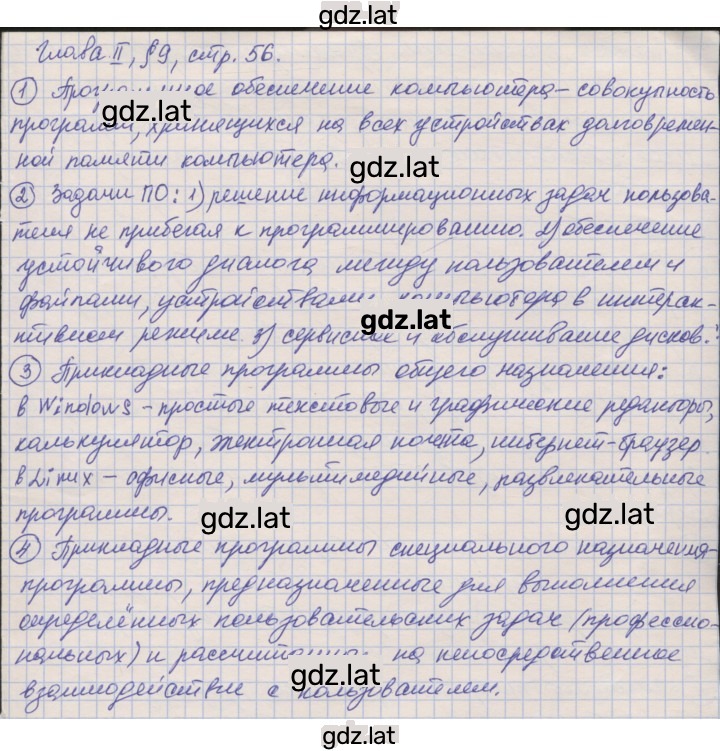 gdz.lat
Глава II, §9, стр. 56.
① Программное обеспечение компьютера – совокупность
gdz.lat
программ, хранящихся на всех устройствах долговремен-
ной памяти компьютера.
gdz.lat
② Задачи ПО: 1) решение информационных задач пользова-
теля не прибегая к программированию. 2) обеспечение
устойчивого диалога между пользователем и
файлами, устройствами компьютера в интерак-
gdz.lat
тивном режиме. 3) сервисное обслуживание дисков.
③ Прикладные программы общего назначения:
в Windows – простые текстовые и графические редакторы,
калькулятор, электронная почта, интернет-браузер.
в Linux – офисные, мультимедийные, развлекательные
программы.
gdz.lat
gdz.lat
④ Прикладные программы специального назначения-
программы, предназначенные для выполнения
определённых пользовательских задач (профессио-
нальных) и на непосредственное
gdz.lat
взаимодействие с пользователем.
gdz.lat